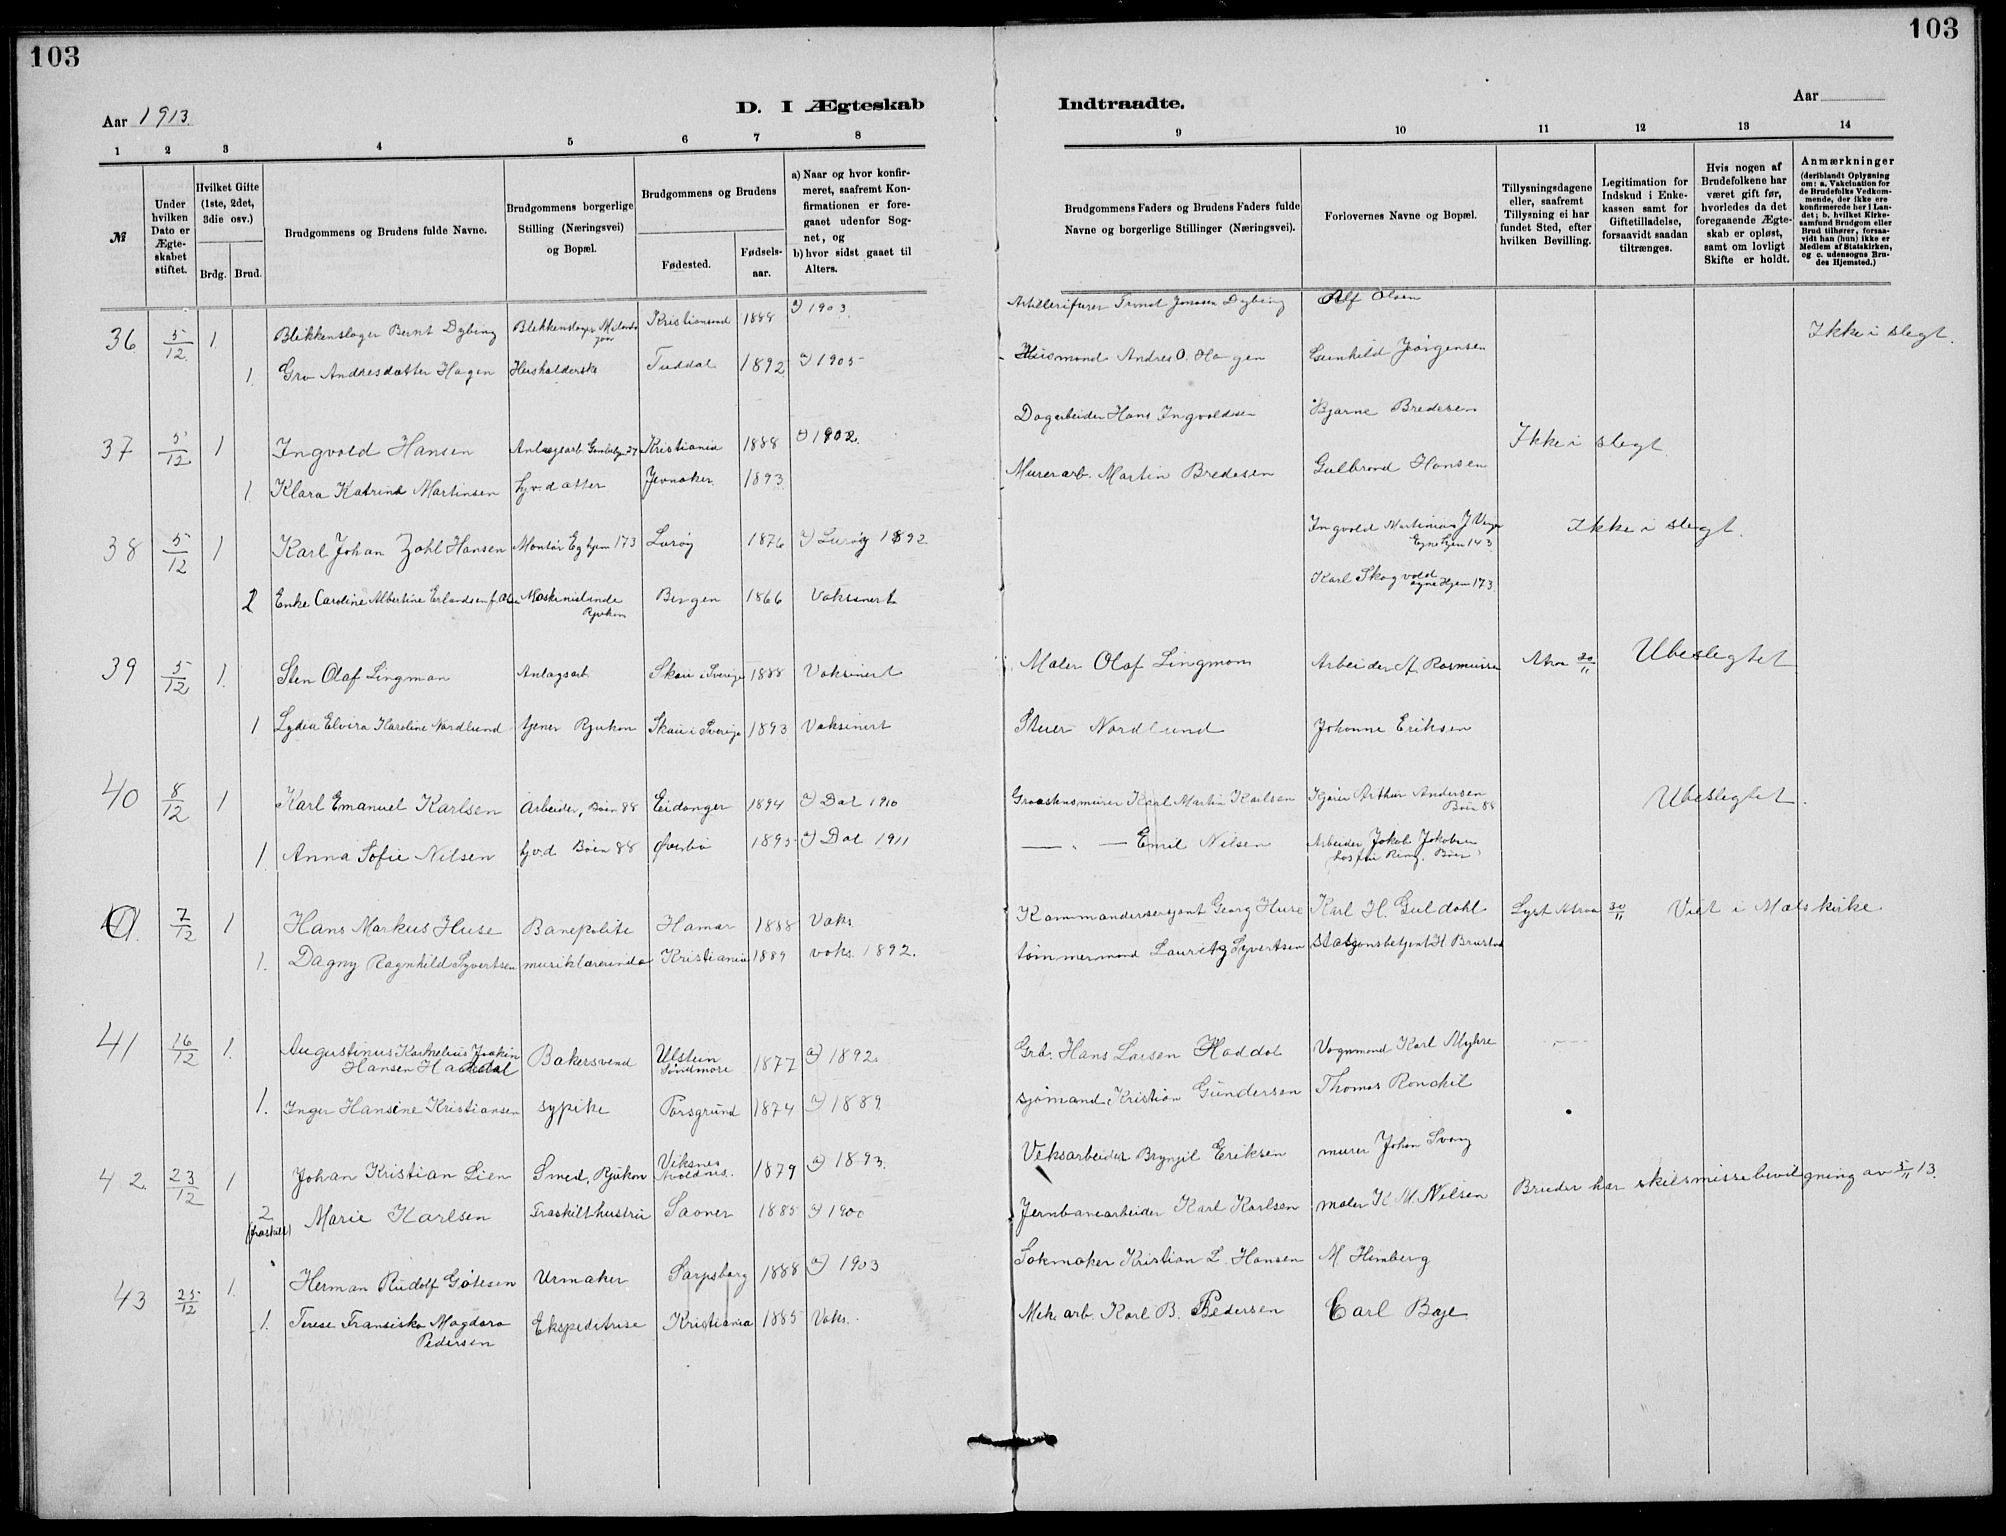 103
103
Aar 1913.
D. I Ægteskab
Indtraadte.
Aar
1 2 3 4 5 6 7 8
9 10 11 12 13 14
№
Under hvilken Dato er Ægteskabet stiftet.
Hvilket Gifte (1ste, 2det, 3die osv.)
Brdg. Brud.
Brudgommens og Brudens fulde Navne.
Brudgommens borgerlige Stilling (Næringsvei) og Bopæl.
Brudgommens og Brudens
Fødested. Fødselsaar.
a) Naar og hvor konfirmeret, saafremt Konfirmationen er foregaaet udenfor Sognet, og
b) hvor sidst gaaet til Alters.
Brudgommens Faders og Brudens Faders fulde Navne og borgerlige Stillinger (Næringsvei).
Forlovernes Navne og Bopæl.
Tillysningsdagene eller, saafremt Tillysning ei har fundet Sted, efter hvilken Bevilling.
Legitimation for Indskud i Enkekassen samt for Giftetilladelse, forsaavidt saadan tiltrænges.
Hvis nogen af Brudefolkene har været gift før, hvorledes da det foregaaende Ægteskab er opløst, samt om lovligt Skifte er holdt.
Anmærkninger (deriblandt Oplysning om: a. Vakcination for de Brudefolks Vedkommende, der ikke ere konfirmerede her i Landet; b. hvilket Kirkesamfund Brudgom eller Brud tilhører, forsaavidt han (hun) ikke er Medlem af Statskirken, og c. udensogns Brudes Hjemsted.)
36 5/12 1. Blikkenslager Bernt Dybing Blekkenslager Kristiansand 1888 a) 1903. Artillerifurer Jonasen Dybing Alf Olsen Ikke i slegt.
1. Gro Andresdatter Hagen Husholderske Tuddal 1892 a) 1905 Husmand Andres O. Hagen Gunhild Jørgensen
37 5/12 1 Ingvold Hansen Kristiania 1888 a) 1902. Dagarbeider Hans Ingvoldsen Bjarne Bredesen Ikke i slegt.
1 Klara Katrine Martinsen hjv. datter Jevnaker 1893 Murerarb. Martin Bredesen Gulbrand Hansen
38 5/12 1 Karl Johan Zahl Hansen Montør Eg. hjem 173 Lurøy 1876 a) Lurøy 1892 Ingvold Martinius J. Egne hjem 143 Ikke i slegt.
2 Enke Caroline Albertine Erlandsen f. Maskinistinde Rjukan Bergen 1866 Vaksinert Karl Skogvold egne Hjem 173
39 5/12 1. Sten Olaf Lingman Anlagsarb. Skau i Sverige 1888 Vaksinert Maler Olaf Lingmom Arbeider A. Rasmussen Atraa 30/11 Ubeslegtet
1 Lydia Elvira Karoline Nordlund tjener Rjukan Skau i Sverige 1893 Vaksinert Stuer Nordlund Johanne Eriksen
40 8/12 1 Karl Emanuel Karlsen Arbeider, Bøen 88 Eidanger 1894 a) Dal 1910 Graastensmurer Karl Martin Karlsen Kjører Arthur Andersen Bøen 88 Ubeslegtet.
1 Anna Sofie Nilsen hjv.d Bøen 88 1895 a) Dal 1911 — " — Emil Nilsen Arbeider Jakob Jakobsen
41. 7/12 1 Hans Markus Huse Banepoliti Hamar 1888 Vaks. Kommandersersjant Georg Huse Karl H. Guldahl Lyst Atraa 30/11 Viet i Mælskirke
1. Dagny Ragnhild Syvertsen musiklærerinde Kristiania 1889 vaks. 1892. tømmermand Lauritz Syvertsen stasjonsbetjent H.
41 16/12 1. Augustinus Kornelius Joakin Hansen Haddal Bakersvend Ulstein Søndmøre 1877 a) 1892. Grb. Hans Larsen Haddal Vognmand Karl Myhre
1. Inger Hansine Kristiansen sypike Porsgrund 1874 a) 1889. sjømand Kristian Gundersen Thomas
42. 23/12 1 Johan Kristian Lien Smed, Rjukan Viksnes Avaldnes. 1879 a) 1893. Veksarbeider Brynjil Eriksen murer Johan Svang
2 (fraskilt) Marie Karlsen Fraskilt hustru 1885 a) 1900 Jernbanearbeider Karl Karlsen maler K. M. Nilsen Bruden har skilsmissebevilgning av 5/11 13.
43 25/12 1. Herman Rudolf Gøtesen Urmaker Sarpsborg 1888 a) 1903 Sakmaker Kristian L. Hansen M. Himberg
1. Terese Fransiska Magdara Pedersen Ekspeditrise Kristiania 1885 Vaks. Mek. arb. Karl B. Pedersen Carl Boje